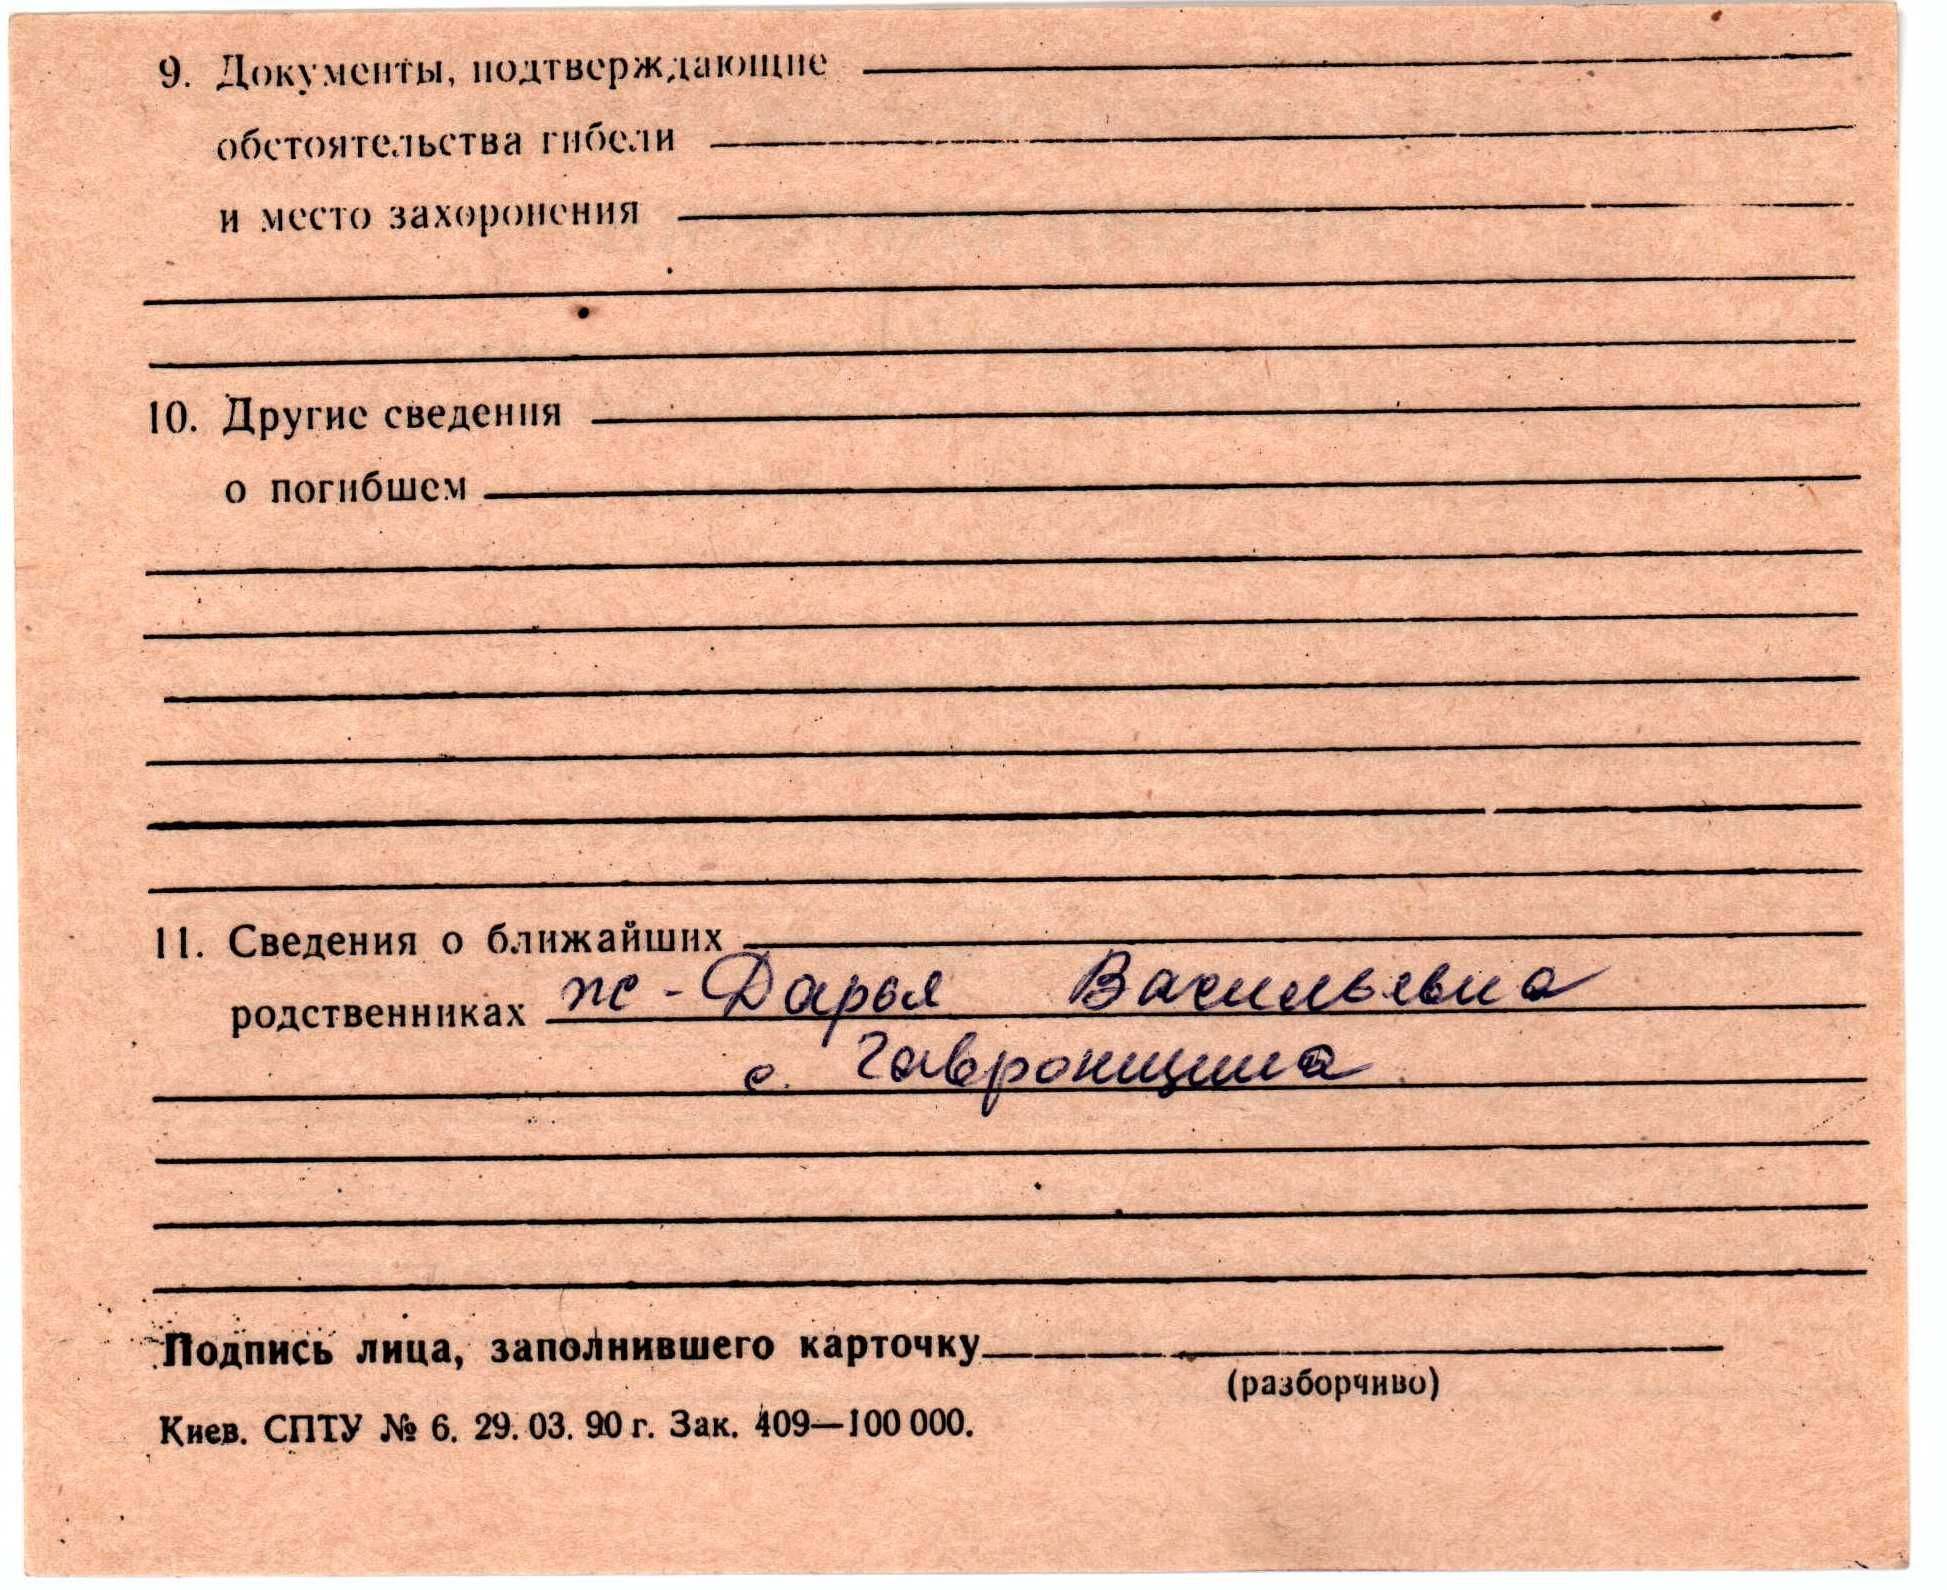 9. Документы, подтверждающие
обстоятельства гибели
и место захоронения
10. Другие сведения
о погибшем
11. Сведения о ближайших
родственниках ж - Дарья Васильевна
с. Гавронщина
Подпись лица, заполнившего карточку
(разборчиво)
Киев. СПТУ № 6. 29. 03. 90 г. Зак. 409—100 000.